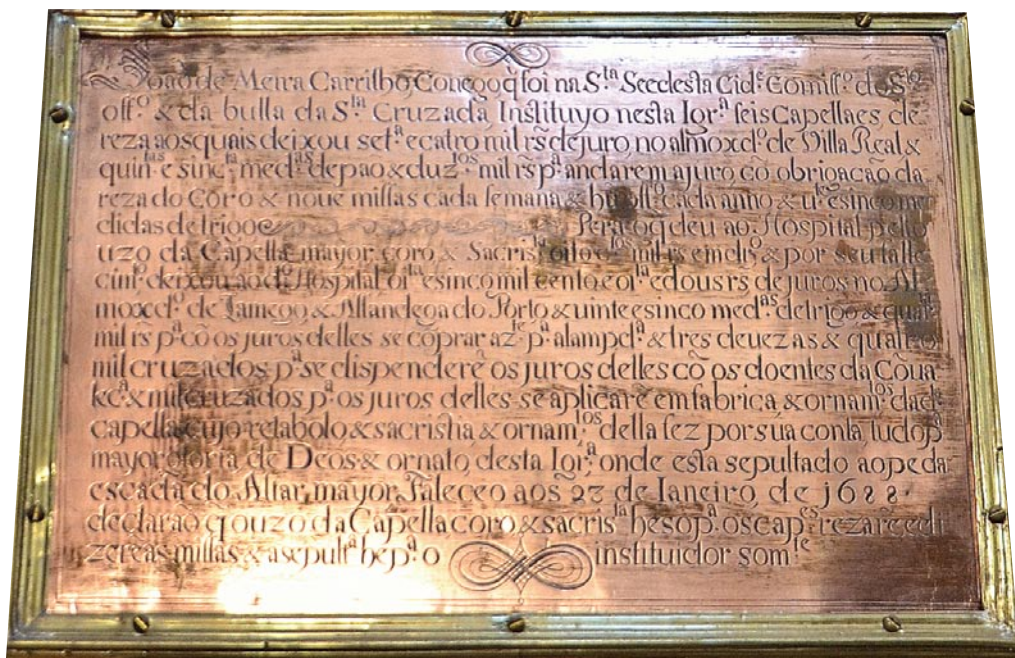 João de Meira Carrilho, Conego q̃ foi na S.ta See desta Cid.e Comiss.o do S.to
off.o & da bulla da S.ta Cruzada, Instituyo nesta Igr.a seis Capellaes, de
reza aos quais deixou set.a e catro mil rs̃ de juro, no almoxd.o de Villa Real &
quin.tas e sinc.ta med.as de pao & duz.tos mil rs̃ p.a andarem a juro cõ obrigação da
reza do Coro & noue missas cada semana & hũ off.o cada anno & u.te e sinco me
didas de trigo Pera o q̃ deu ao Hospital pello
uzo da Capella mayor, coro & Sacris.tia mil rs̃ em & por seu falle
cim.to deixou ao d.o Hospital, oit.ta e sinco mil cento e oi.ta e dous rs̃ de juros no Al
moxd.o de Lamego, & Alfandega do Porto & uinte e sinco med.as de trigo, & quatr.ta
mil rs̃ p.a cõ os juros delles se cõprar az.te p.a a lampd.a & tres cleuezas & quatro
mil cruzados, p.a se dispenderẽ os juros delles cõ os doentes da
& mil cruzados p.a os juros delles se aplicarẽ em fabrica, & ornam.tos da d.a
capella, cujo retabolo, & sacristia & ornam.tos della fez por sua conta, tudo p.a
mayor gloria, de Deos & ornato, desta Igr.a, onde esta sepultado ao pe da
escada do Altar, mayor, Faleceo aos 23 de Ianeiro, de 1688.
declarão q̃ o uzo da Capella coro, & sacris.tia he so p.a os cap.es rezarẽ e di
zerẽ as missas, & a sepult.a he p.a o instituidor som.te